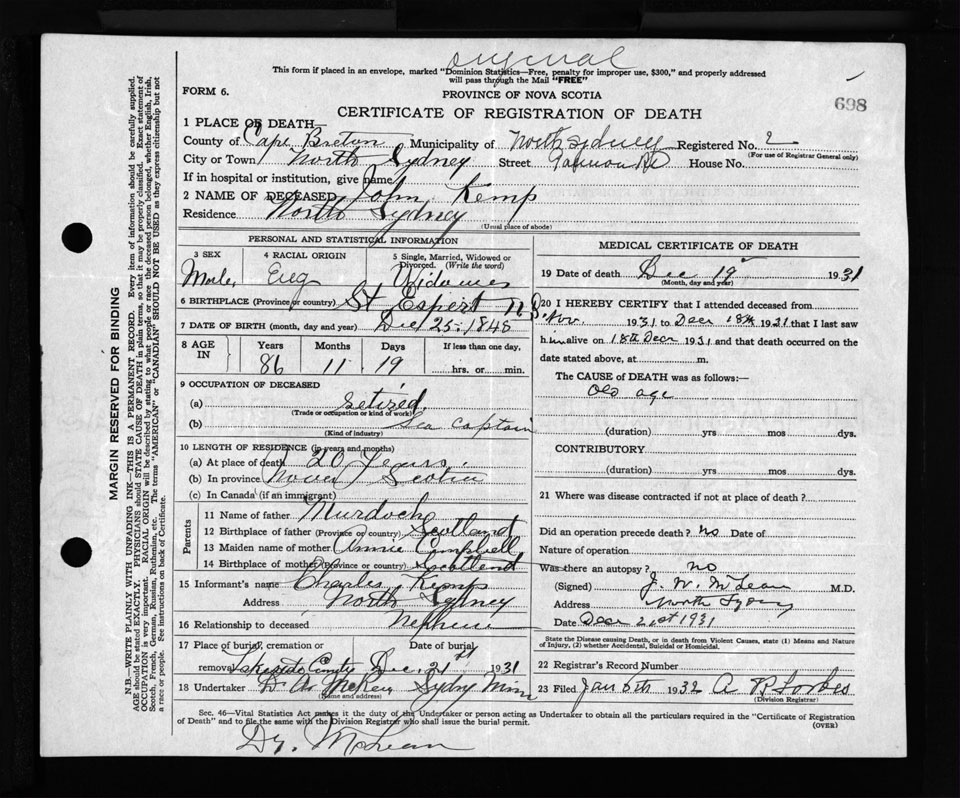 original
This form if placed in an envelope, marked "Dominion Statistics—Free, penalty for improper use, $300," and properly addressed
will pass through the Mail "FREE"
FORM 6.
PROVINCE OF NOVA SCOTIA
698
CERTIFICATE OF REGISTRATION OF DEATH
1 PLACE OF DEATH—
County of Cape Breton Municipality of North Sydney Registered No. 2
(For use of Registrar General only)
City or Town North Sydney Street Rd House No.
If in hospital or institution, give name
2 NAME OF DECEASED John Kemp
Residence North Sydney
(Usual place of abode)
PERSONAL AND STATISTICAL INFORMATION
3 SEX 4 RACIAL ORIGIN 5 Single, Married, Widowed or Divorced. (Write the word)
Male, Eng
6 BIRTHPLACE (Province or country) St N.S.
7 DATE OF BIRTH (month, day and year) Dec 25-1848
8 AGE IN Years Months Days If less than one day,
86 11 19 hrs. or min.
9 OCCUPATION OF DECEASED
(a) retired
(Trade or occupation or kind of work)
(b) Sea Captain
(Kind of industry)
10 LENGTH OF RESIDENCE (in years and months)
(a) At place of death 20 Years.
(b) In province Nova Scotia
(c) In Canada (if an immigrant)
Parents
11 Name of father Murdoch
12 Birthplace of father (Province or country) Scotland
13 Maiden name of mother Annie Campbell
14 Birthplace of mother (Province or country) Scotland
15 Informant's name Charles Kemp
Address North Sydney
16 Relationship to deceased Nephew
17 Place of burial, cremation or Date of burial or
removal Lakeside Dec. 21st 1931
18 Undertaker D. A. McKay Sydney Mines
(Name and address)
MEDICAL CERTIFICATE OF DEATH
19 Date of death Dec 19 1931
(Month, day and year)
20 I HEREBY CERTIFY that I attended deceased from
Nov. 1931 to Decr 18th 1931 that I last saw
him alive on 18th Decr 1931 and that death occurred on the
date stated above, at m.
The CAUSE of DEATH was as follows:—
Old age
(duration) yrs mos dys.
CONTRIBUTORY
(duration) yrs mos dys.
21 Where was disease contracted if not at place of death?
Did an operation precede death? No Date of
Nature of operation
Was there an autopsy? no
(Signed) J. W. McLean M.D.
Address North Sydney
Date Decr 21st 1931
State the Disease causing Death, or in death from Violent Causes, state (1) Means and Nature
of Injury, (2) whether Accidental, Suicidal or Homicidal.
22 Registrar's Record Number
23 Filed Jan 5th 1932 A P Forbes
(Division Registrar)
Sec. 46—Vital Statistics Act makes it the duty of the Undertaker or person acting as Undertaker to obtain all the particulars required in the "Certificate of Registration
of Death" and to file the same with the Division Registrar who shall issue the burial permit.
(OVER)
Dr. McLean
MARGIN RESERVED FOR BINDING
N.B.—WRITE PLAINLY WITH UNFADING INK—THIS IS A PERMANENT RECORD. Every item of information should be carefully supplied.
AGE should be stated EXACTLY. PHYSICIANS should STATE CAUSE OF DEATH in plain terms, so that it may be properly classified. Exact statement of
OCCUPATION is very important. RACIAL ORIGIN will be described by stating to what people or race the deceased person belonged, whether English, Irish,
Scotch, French, German, Russian, Ruthenian, etc. The terms "AMERICAN" or "CANADIAN" SHOULD NOT BE USED as they express citizenship but not
a race or people. See instructions on back of Certificate.